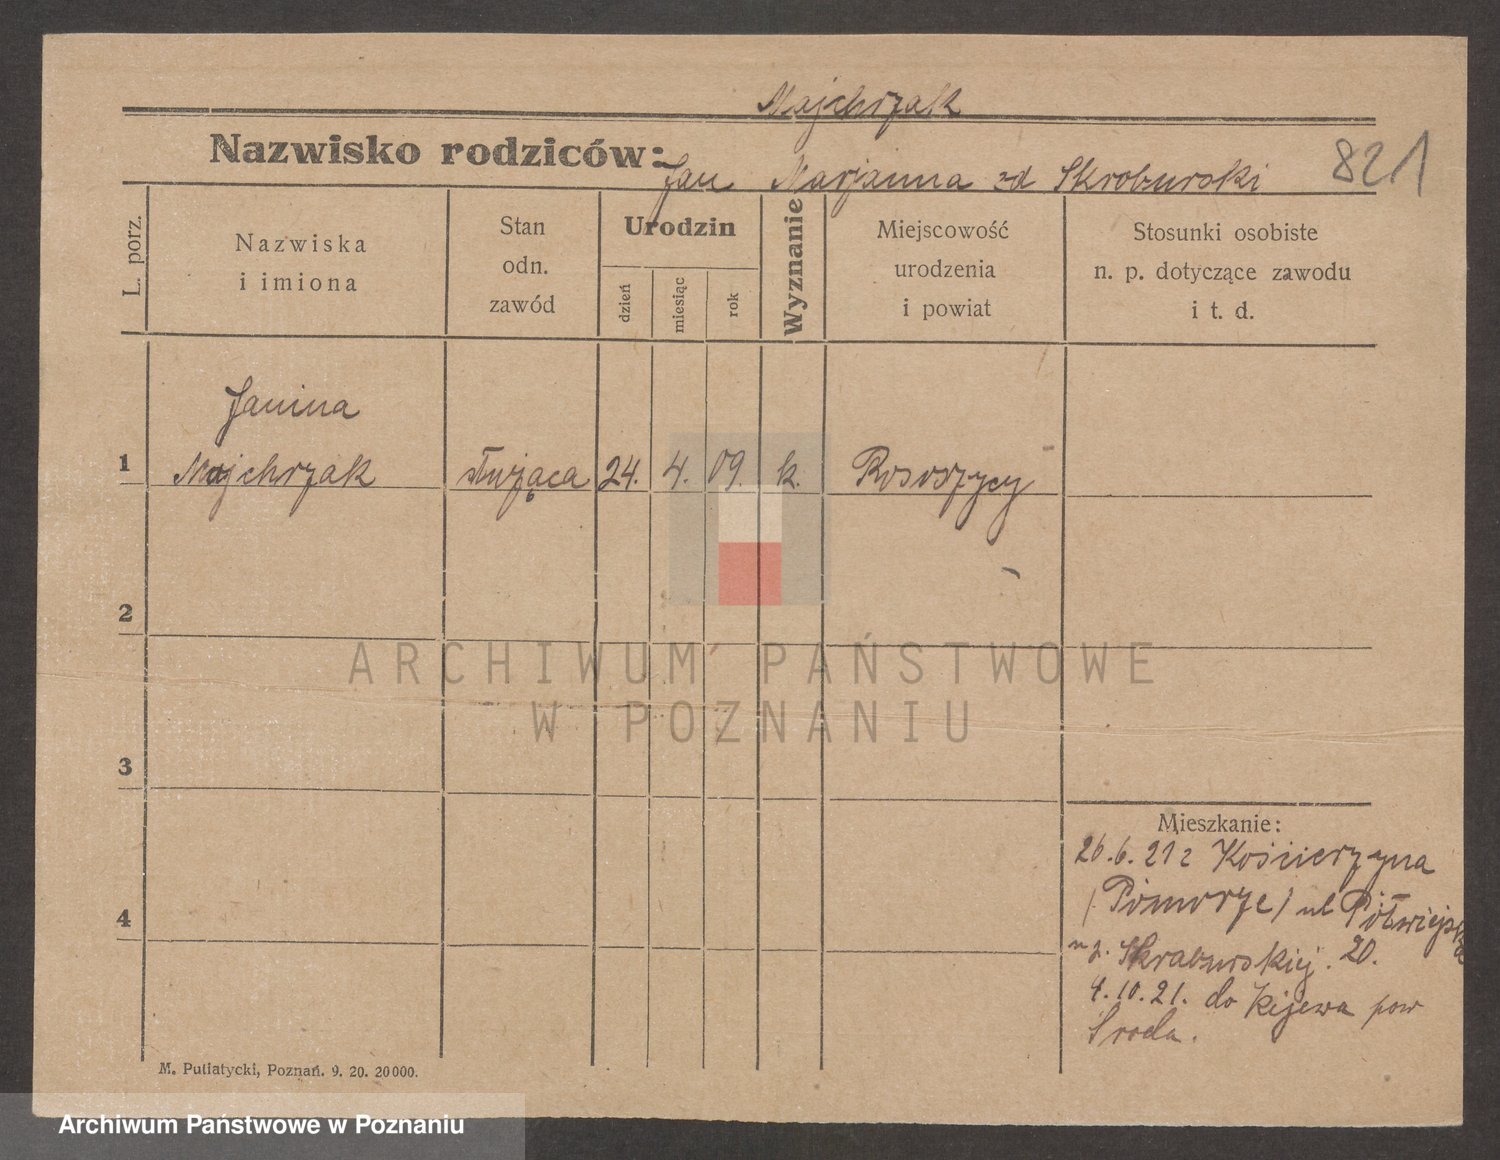 Majchrzak
Nazwisko rodziców:
Jan Marjanna zd Skroburski
821
L. porz.
Nazwiska
i imiona
Stan
odn.
zawód
Urodzin
dzień
miesiąc
rok
Wyznanie
Miejscowość
urodzenia
i powiat
Stosunki osobiste
n. p. dotyczące zawodu
i t. d.
Janina
1 Majchrzak służąca 24. 4. 09. k. Rososzycy
2
3
4
ARCHIWUM PAŃSTWOWE
W POZNANIU
Mieszkanie:
26.6.21 z Kościerzyna
(Pomorze) ul Półwiejska
Skraburskiej. 20.
4.10.21. do Kijewa pow
Sroda.
M. Putiatycki, Poznań. 9. 20. 20000.
Archiwum Państwowe w Poznaniu